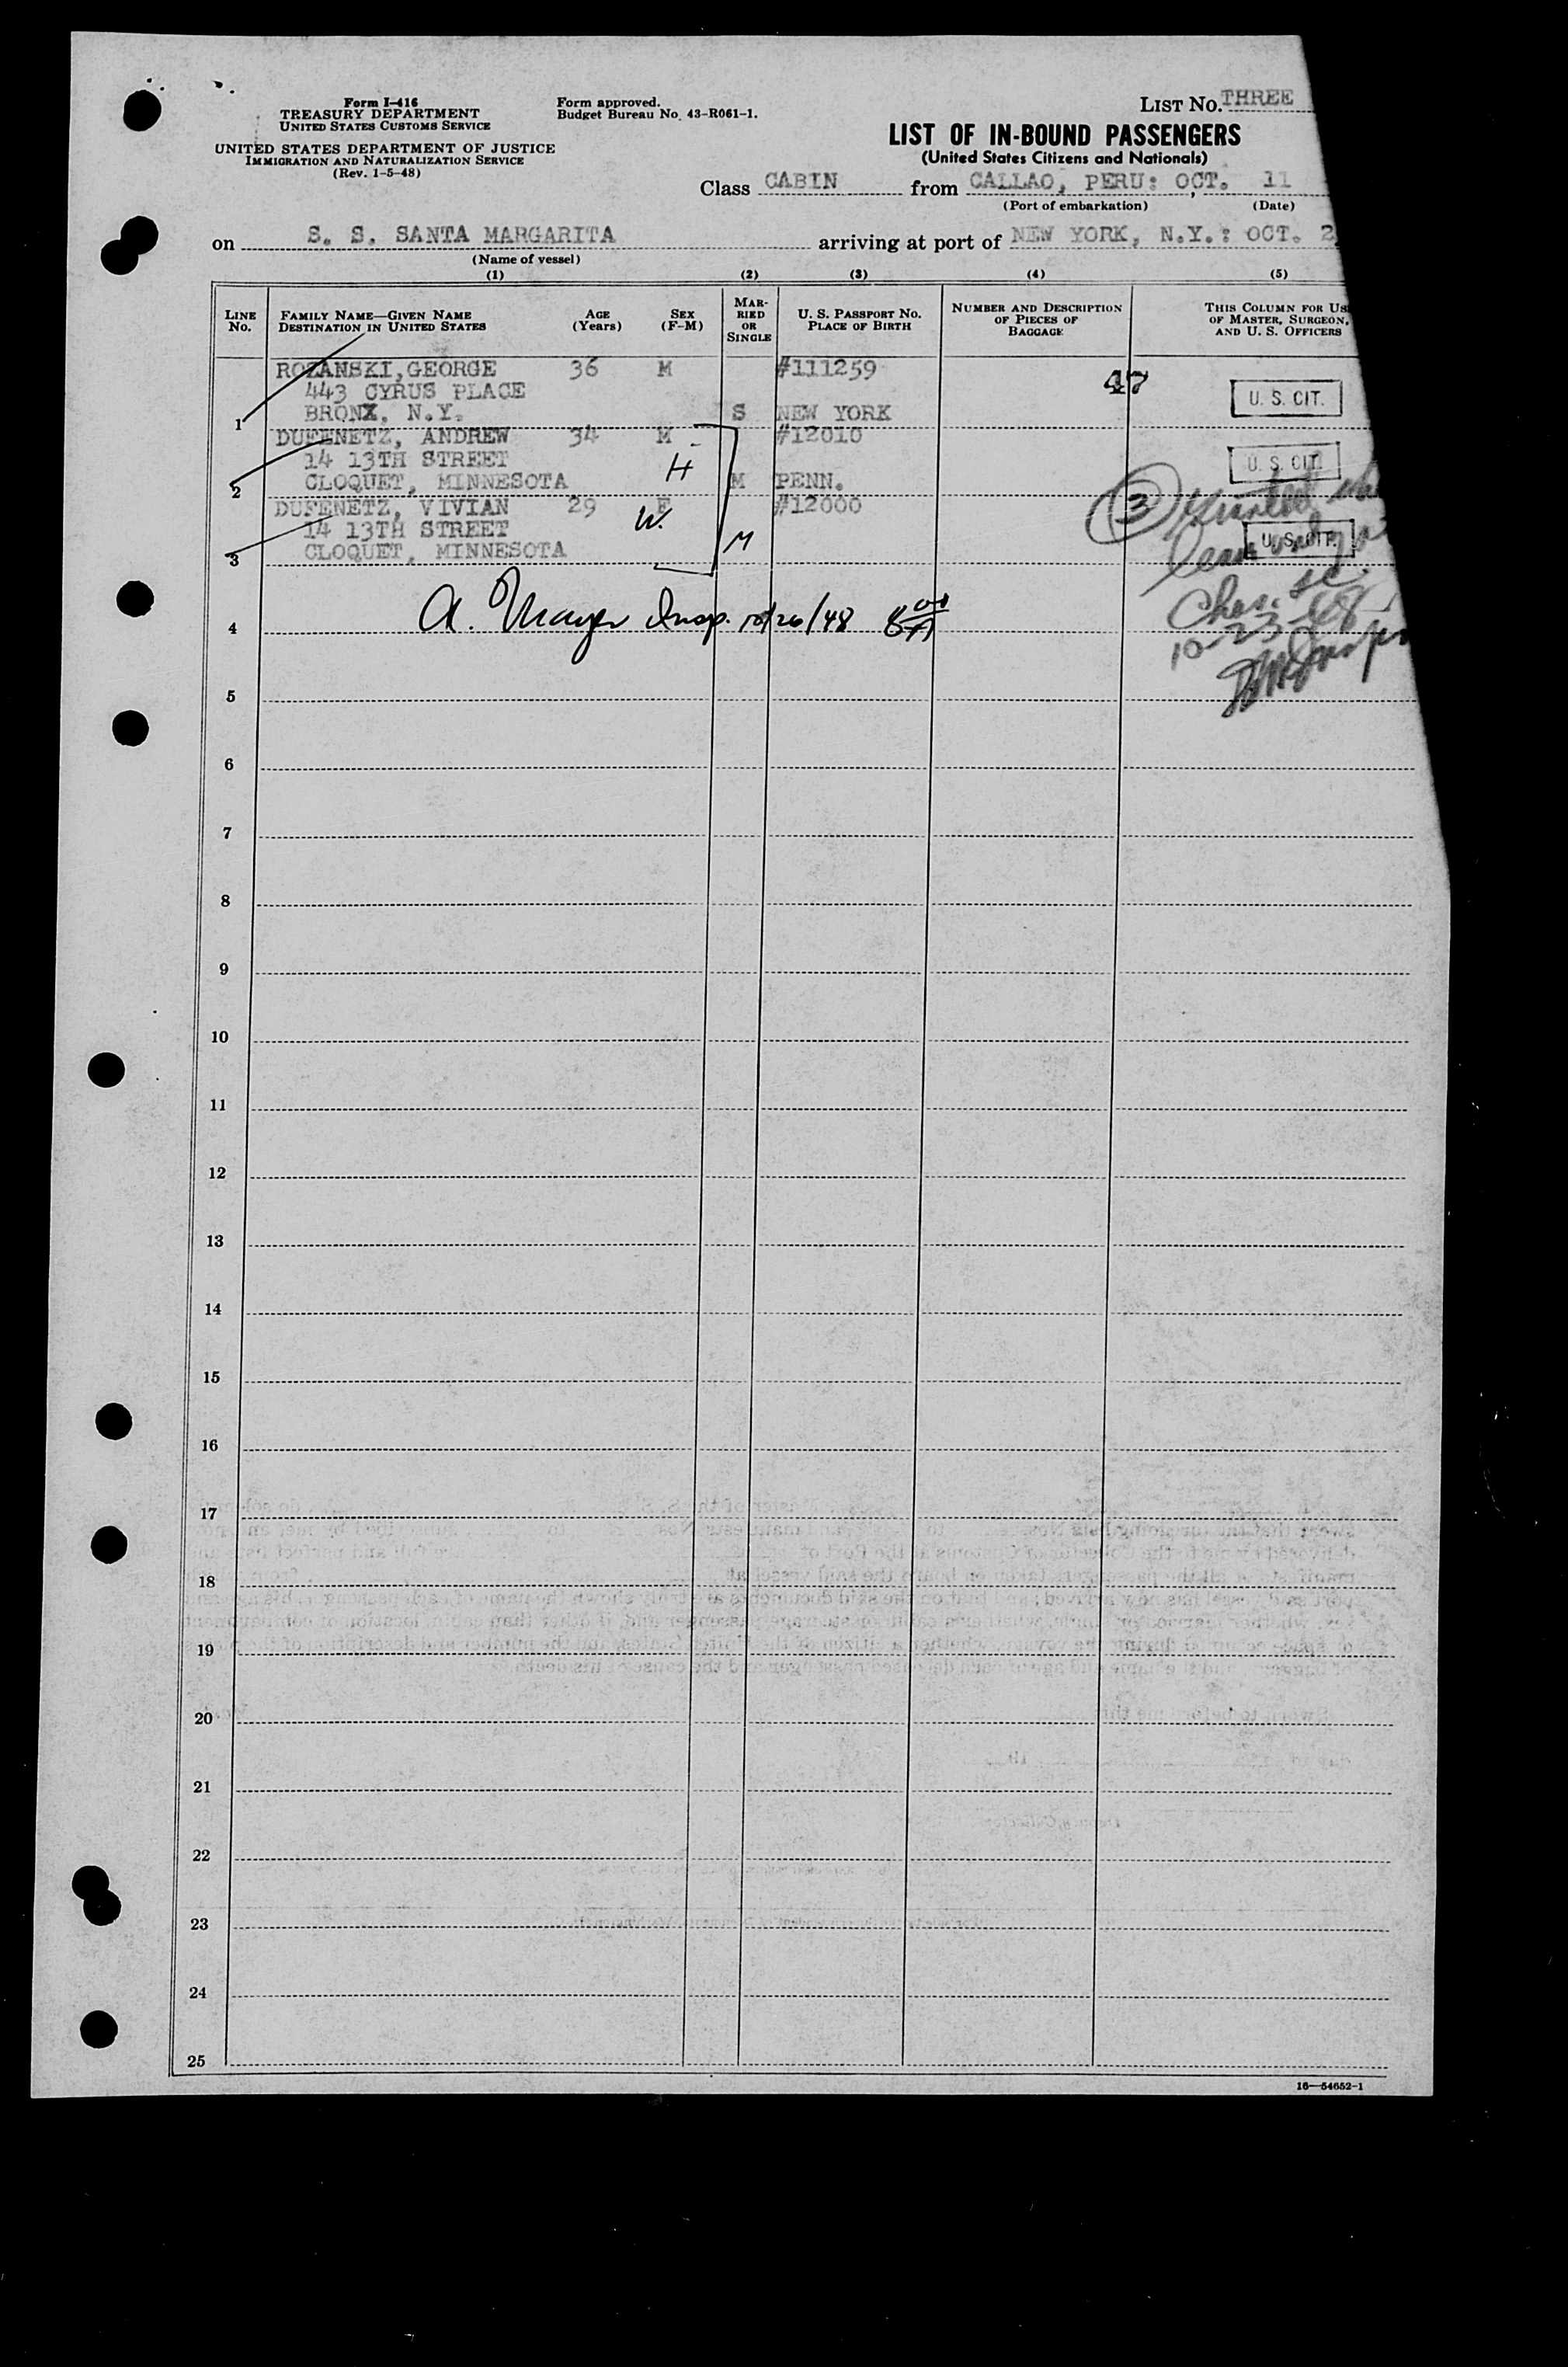 Form I-416
TREASURY DEPARTMENT
UNITED STATES CUSTOMS SERVICE
UNITED STATES DEPARTMENT OF JUSTICE
IMMIGRATION AND NATURALIZATION SERVICE
(Rev. 1-5-48)
Form approved.
Budget Bureau No. 43-R061-1.
LIST NO. THREE
LIST OF IN-BOUND PASSENGERS
(United States Citizens and Nationals)
Class CABIN from CALLAO, PERU: OCT. 11
(Port of embarkation) (Date)
on S. S. SANTA MARGARITA arriving at port of NEW YORK, N.Y.: OCT. 2
(Name of vessel)
(1) (2) (3) (4) (5)
LINE No.
FAMILY NAME—GIVEN NAME
DESTINATION IN UNITED STATES
AGE
(Years)
SEX
(F-M)
MAR-
RIED
OR
SINGLE
U. S. PASSPORT No.
PLACE OF BIRTH
NUMBER AND DESCRIPTION
OF PIECES OF
BAGGAGE
THIS COLUMN FOR US
OF MASTER, SURGEON,
AND U. S. OFFICERS
ROZANSKI, GEORGE 36 M #111259
443 CYRUS PLACE 47 U. S. CIT.
1 BRONX, N.Y. S NEW YORK
DUFENETZ, ANDREW 34 M #12010
14 13TH STREET H U. S. CIT.
2 CLOQUET, MINNESOTA M PENN.
DUFENETZ, VIVIAN 29 F #12000 3
14 13TH STREET W. U. S. CIT.
3 CLOQUET, MINNESOTA M
Chas. SC.
10-23-48
4 A. Mayer Insp. 10/26/48
5
6
7
8
9
10
11
12
13
14
15
16
17
18
19
20
21
22
23
24
25
16—54652-1